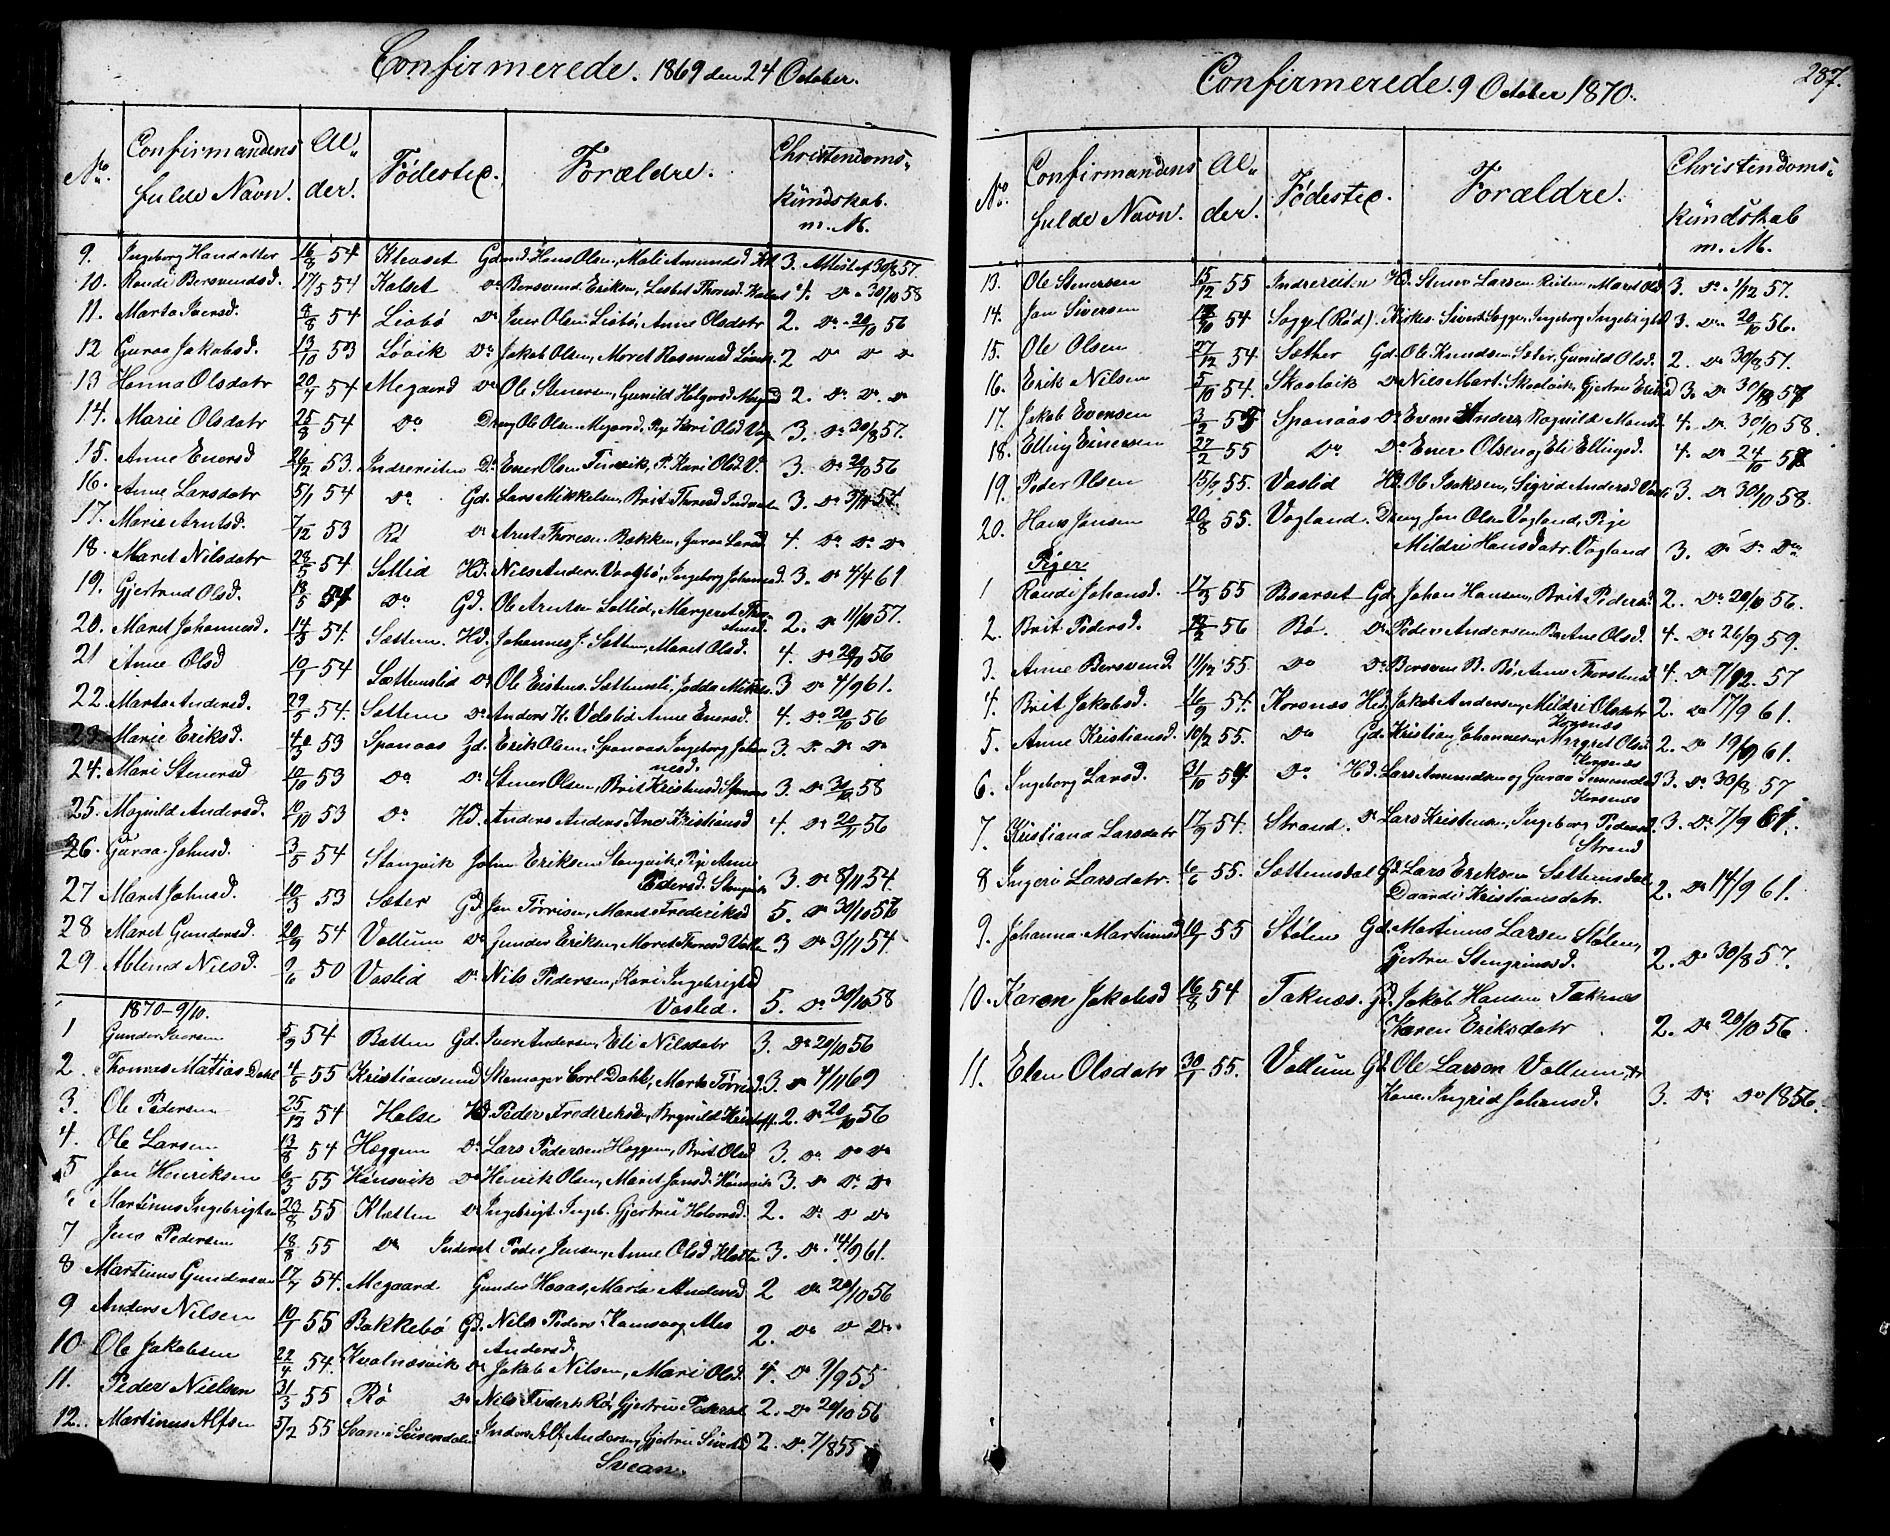 Confirmerede. 1869 den 24 October.
No. Confirmandens fulde Navn. Alder. Fødested. Forældre. Christendoms-kundskab. m. M.
9. Ingeborg Hansdatter 54 Gd. Hans Olsen, Mali Amundsd. 3. Attest af 30/8 57.
10. Randi Bersvendsd. 17/5 54 Kalset Do Bersvend Eriksen, Lisbet Thoresd. Kalset 4. Do 30/10 58
11. Marta Iversd. 8/8 54 Liabø Do Iver Olsen Liabø, Anne Olsdatr 2. Do 20/10 56
12 Guraa Jakobsd. 13/10 53 Løvik Do Jakob Olsen, Maret Rasmusd Løvik 2 Do Do Do
13 Hanna Olsdatr 54 Megaard Do Ole Stenersen, Gunild Holgersd Megrd 2. Do Do Do
14. Marie Olsdatr 25/8 54 Do Dreng Ole Olsen Megaard. Pige Kari Olsd 3. Do 30/8 57.
15. Anne Enersd 26/12 53. Indrereiten Do Ener Olsen P. Kari Olsd. 3. Do 20/10 56
16. Anne Larsdatr 5/1 54 Do Gd. Lars Mikkelsen, Brit Thoresd 3. Do 54.
17. Marie Arntsd. 7/12 53 Rø Do Arnt Thoresen Bækken, Guraa Larsd 4. Do Do Do
18. Maret Nilsdatr 28/5 54 Sollid Hd. Nils Anders. Ingeborg Johansd 3. Do 4/4 61
19. Gjertrud Olsd. 54 Do Gd. Ole Arntsen Sollid, Margeret 2. Do 11/10 57.
20. Maret Johannesd. 54. Sættem Hd. Johannes J. Sættem, Maret Olsd. 4. Do 20/10 56
21 Anne Olsd 54 Sættemslid Do Ole Sættemsli, 3 Do 4/9 61.
22. Marta Andersd. 29/5 54. Sættem Do Anders H. Anne Enersd. 4. Do 20/10 56
23. Marie Eriksd. 53 Spanaas Gd. Erik Olsen Spanaas Ingeborg Johan
nesd. 3. Do Do Do
24. Mari Stenersd. 53 Do Do Stener Olsen, Brit Kristensd. 3. Do 58
25. Magnild Andersd. 10/10 53 Do Hd. Anders Anders. Ane Kristiansd 4. Do 56
26. Guraa Johnsd. 3/5 54 Stangvik John Eriksen Stangvik, Pige Anne
Pedersd. Stangvik 3. Do 8/11 54.
27 Maret Johnsd. 53 Sæter Gd. Jon Tørrisen, Maret Frederiksd 5. Do 30/10
28 Maret Gundersd. 20/9 54 Vollum Do Gunder Eriksen, Maret Thoresd 3 Do 3/11 54.
29 Nilsd. 50 Vaslid Do Nils Pedersen, Kari Ingebrigtsd
Vaslid. 5. Do 30/10 58
1870 - 9/10.
1 Gunder Iversen 5/9 54 Bolten Gd. Iver Andersen, Eli Nilsdatr 3. Do 20/10 56
2 Thomas Matias Dahl 4/5 55 Kristiansund Skomager Carl Dahl, Marta 3. Do 4/11 69
3. Ole Pedersen 25/12 54 Halse Hd. Peder Frederiksen, 2. Do 20/10 56
4. Ole Larsen 13/8 54 Hæggem Do Lars Pedersen Hæggem, Brit Olsd 3. Do Do Do
5 Jon Henriksen 55 Hønsvik Do Henrik Olsen, Maret Jonsd. Hønsvik 3. Do Do Do
6 Martinus Ingebrigtsen 23/8 55 Kletten Do Ingebrigt Ingeb. Gjertru Halvorsd. 2. Do Do Do
7 Jens Pedersen 18/8 55 Do Inderst Peder Jensen, Anne Olsd Kletten 3. Do 14/9 61.
8 Martinus Gundersen 54. Megaard Gunder Marta Andersd 2 Do 20/10 56
9 Anders Nilsen 55 Bakkebø Gd. Nils Peders.
Andersd. 2. Do Do Do
10 Ole Jakobsen 22/4 54. Kvalnæsvik Do Jakob Nilsen, Mari Olsd. 4. Do 55
11. Peder Nielsen 31/3 55 Rø Do Nils Rø, Gjertru Pedersd 2. Do 20/10 56
12. Martinus Alfsen 5/2 55 Inders Alf Andersen, Gjertru Sivertsd 2. Do 7/8 55
Svean.
Confirmerede. 9 October 1870. 287.
No. Confirmandens fulde Navn. Alder. Fødested. Forældre. Christendoms-kundskab m. M.
13. Ole Stenersen 15/12 55 Indrereiten Hd. Stener Larsen Reiten, Maret Olsd 3. Do 1/12 57.
14. Jon Siversen 54 Sogge (Rød) Sivert Sogge, Ingeborg Ingebrigtsd 3. Do 20/10 56.
15. Ole Olsen 27/12 54 Sæther Gd. Ole Knudsen Sæter, Gunild Olsd. 2. Do 30/8 57.
16. Erik Nilsen 5/10 54. Skaalvik Do Nils Mart. Skaalvik, Gjertru 3. Do
17. Jakob Evensen 3/2 Spanaas Do Even Anders. Ragnild 4. Do 30/10 58.
18. Elling Enersen 27/2 55 Do Do Ener Olsen og Eli Ellingsd. 4. Do
19. Peder Olsen 15/6 55. Vaslid Hd. Ole Isaksen, Sigrid Andersd 3. Do 30/10 58.
20. Hans Jonsen 20/8 55. Vagland. Dreng Jon Olsen Vagland, Pige
Mildri Hansdatr. Vagland 3. Do Do Do
Piger
1 Randi Johansd. 55 Boarset Gd. Johan Hansen, Brit Pedersd 2. Do 20/10 56.
2. Brit Pedersd. 56 Bø. Do Peder Andersen Bø Ane Olsd. 4. Do 26/9 59.
3. Anne Bersvend. 11/12 55. Do Do Bersven B. Bø, Ane Thorstensd 4. Do 57
4. Brit Jakobsd. 16/9 54. Korsnæs Hd. Jakob Andersen, Mildri Olsdatr
Korsnæs 2. Do 17/9 61.
5. Anne Kristiansd. 10/2 55. Do Gd. Kristian Johannesen, Margret Olsd
Korsnæs 2. Do 19/9 61.
6. Ingeborg Larsd. 31/10 Do Hd. Lars Amundsen og Guraa
Korsnæs 3. Do 30/8 57
7. Kristiana Larsdatr 17/9 54. Strand. Do Lars Kristensen, Ingeborg Pedersd
Strand 3. Do 7/9 61.
8 Ingeri Larsdatr. 55. Sættemsdal Gd. Lars Eriksen Sættemsdal
Kristiansdatr. 2. Do 14/9 61.
9. Johanna Martinusd 55 Stølen Gd. Martinus Larsen Stølen,
Gjertru Stengrimsd. 2. Do 30/8 57.
10. Karen Jakobsd 16/8 54 Taknæs. Gd. Jakob Hansen Taknæs
Karen Eriksdatr 2. Do 20/10 56
11. Elen Olsdatr 30/1 55. Vollum Gd. Ole Larsen Vollum,
Kone Ingrid Johansd. 3. Do Do 1856.